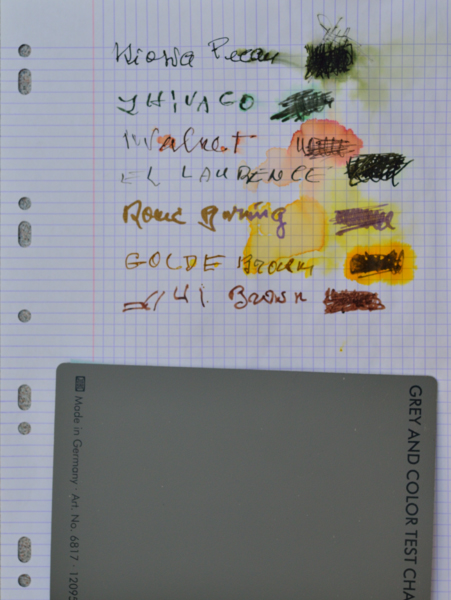 Kiowa Pecan
ZHIVAGO
Walnut
EL LAURENCE
Rome Burning
GOLDE Brown
Brown
GREY AND COLOR TEST CHA
Made in Germany · Art. No. 6817 · 12095